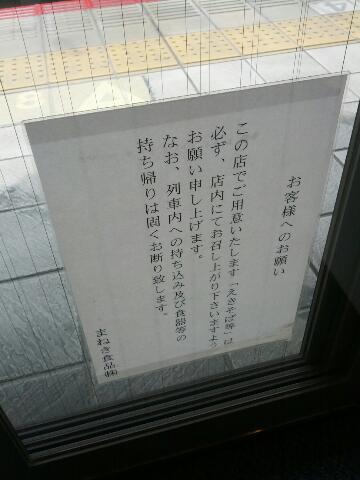 お客様へのお願い
この店でご用意いたします「えきそば等」は
必ず、店内にてお召し上がり下さいますよう
お願い申し上げます。
なお、列車内への持ち込み及び食器等の
持ち帰りは固くお断り致します。
まねき食品㈱